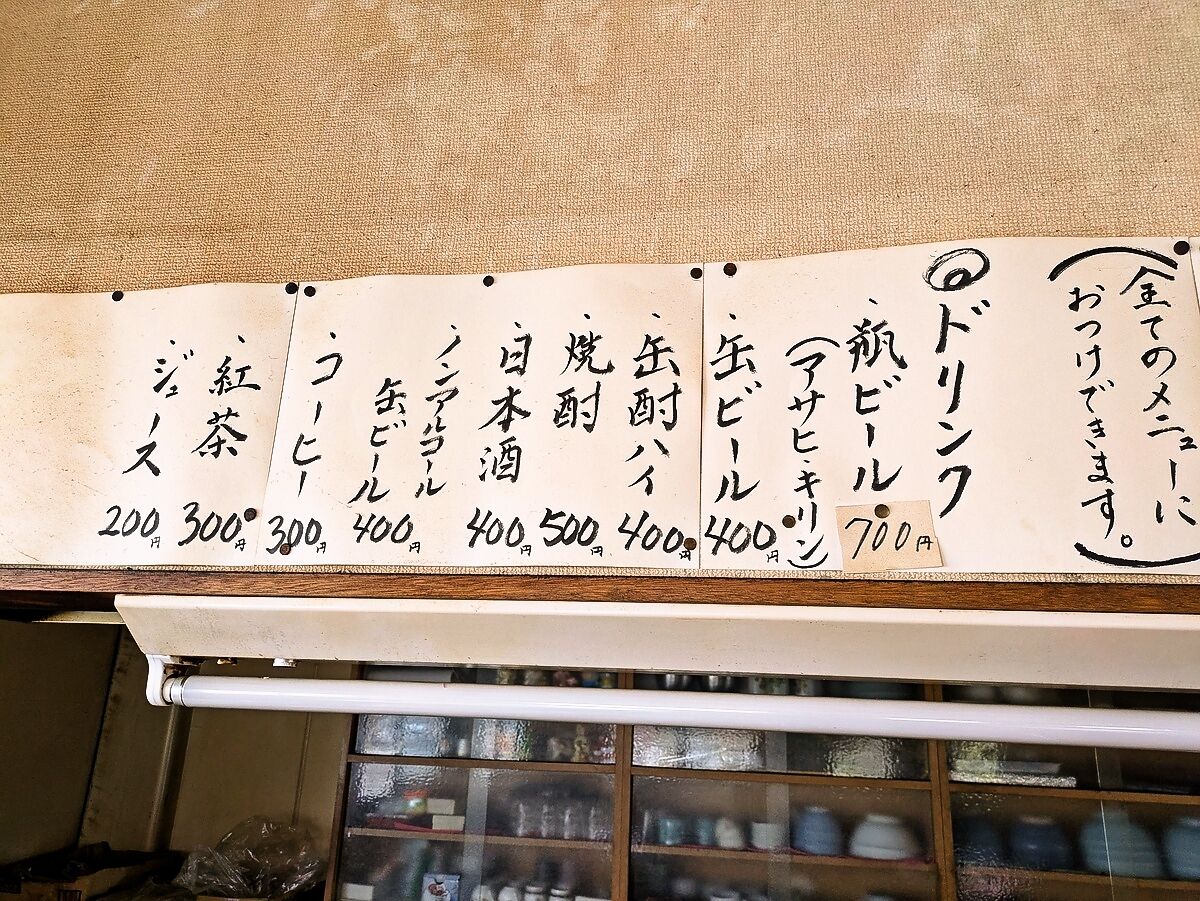 （全てのメニューに
おつけできます。）
◎ドリンク
・瓶ビール 700円
（アサヒ・キリン）
・缶ビール 400円
・缶酎ハイ 400円
・焼酎 500円
・日本酒 400円
・ノンアルコール
缶ビール 400円
・コーヒー 300円
・紅茶 300円
・ジュース 200円